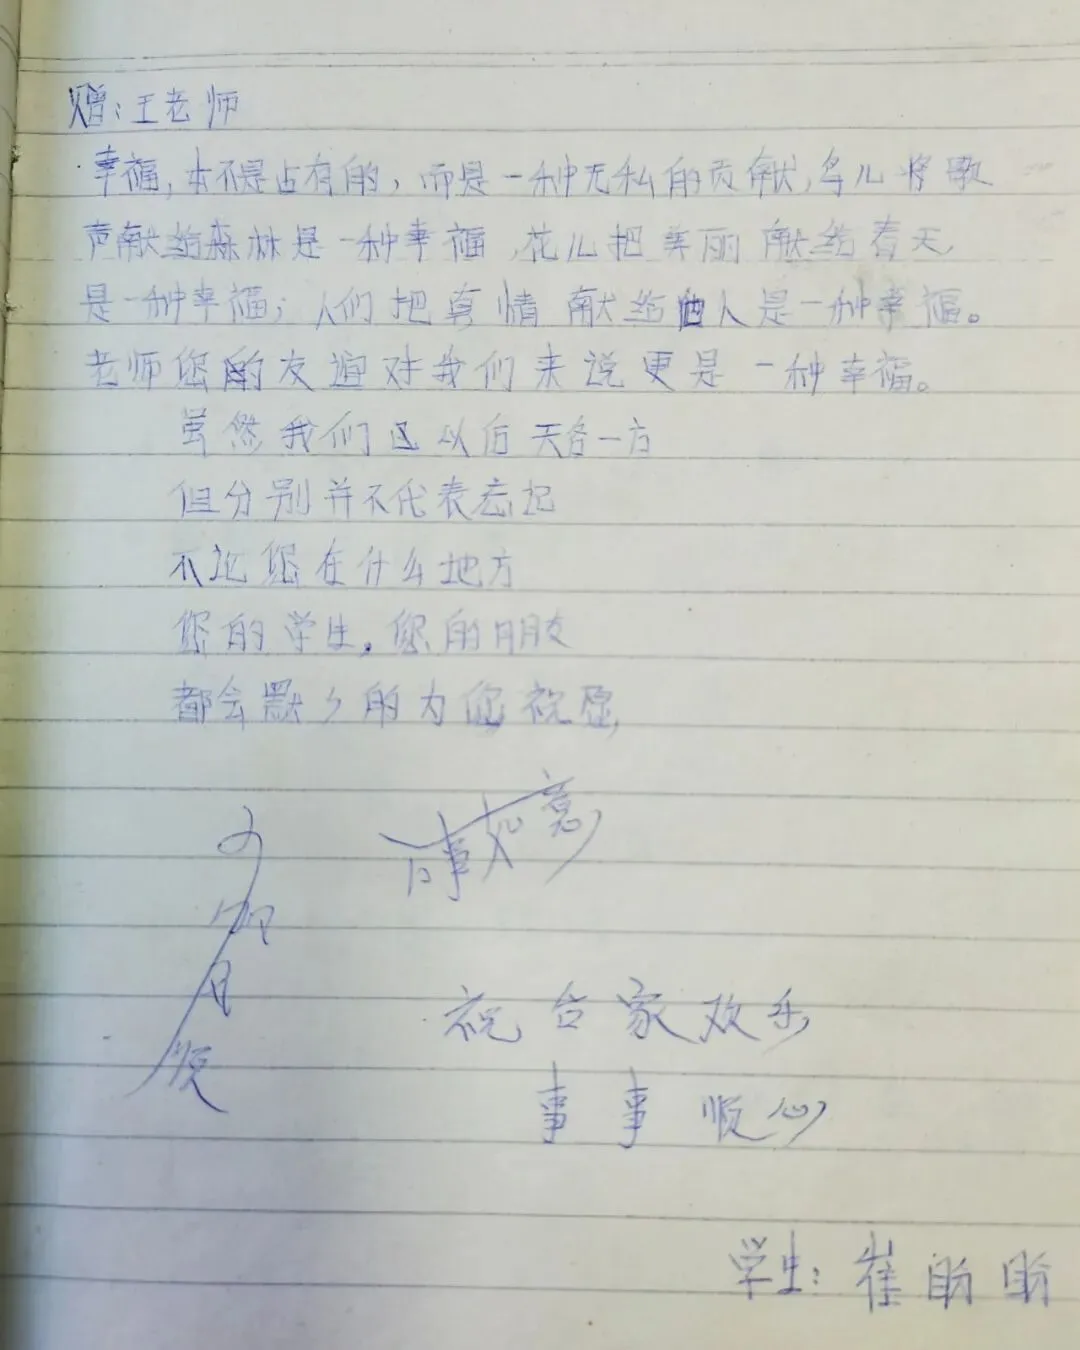 赠:王老师
幸福,本不是占有的,而是一种无私的贡献,鸟儿将歌
声献给森林是一种幸福,花儿把美丽献给春天
是一种幸福;人们把真情献给他人是一种幸福。
老师您的友谊对我们来说更是一种幸福。
虽然我们 以后天各一方
但分别并不代表忘记
不论您在什么地方
您的学生,您的朋友
都会默々的为您祝愿
百事如意
祝合家欢乐
事事顺心
学生:崔盼盼